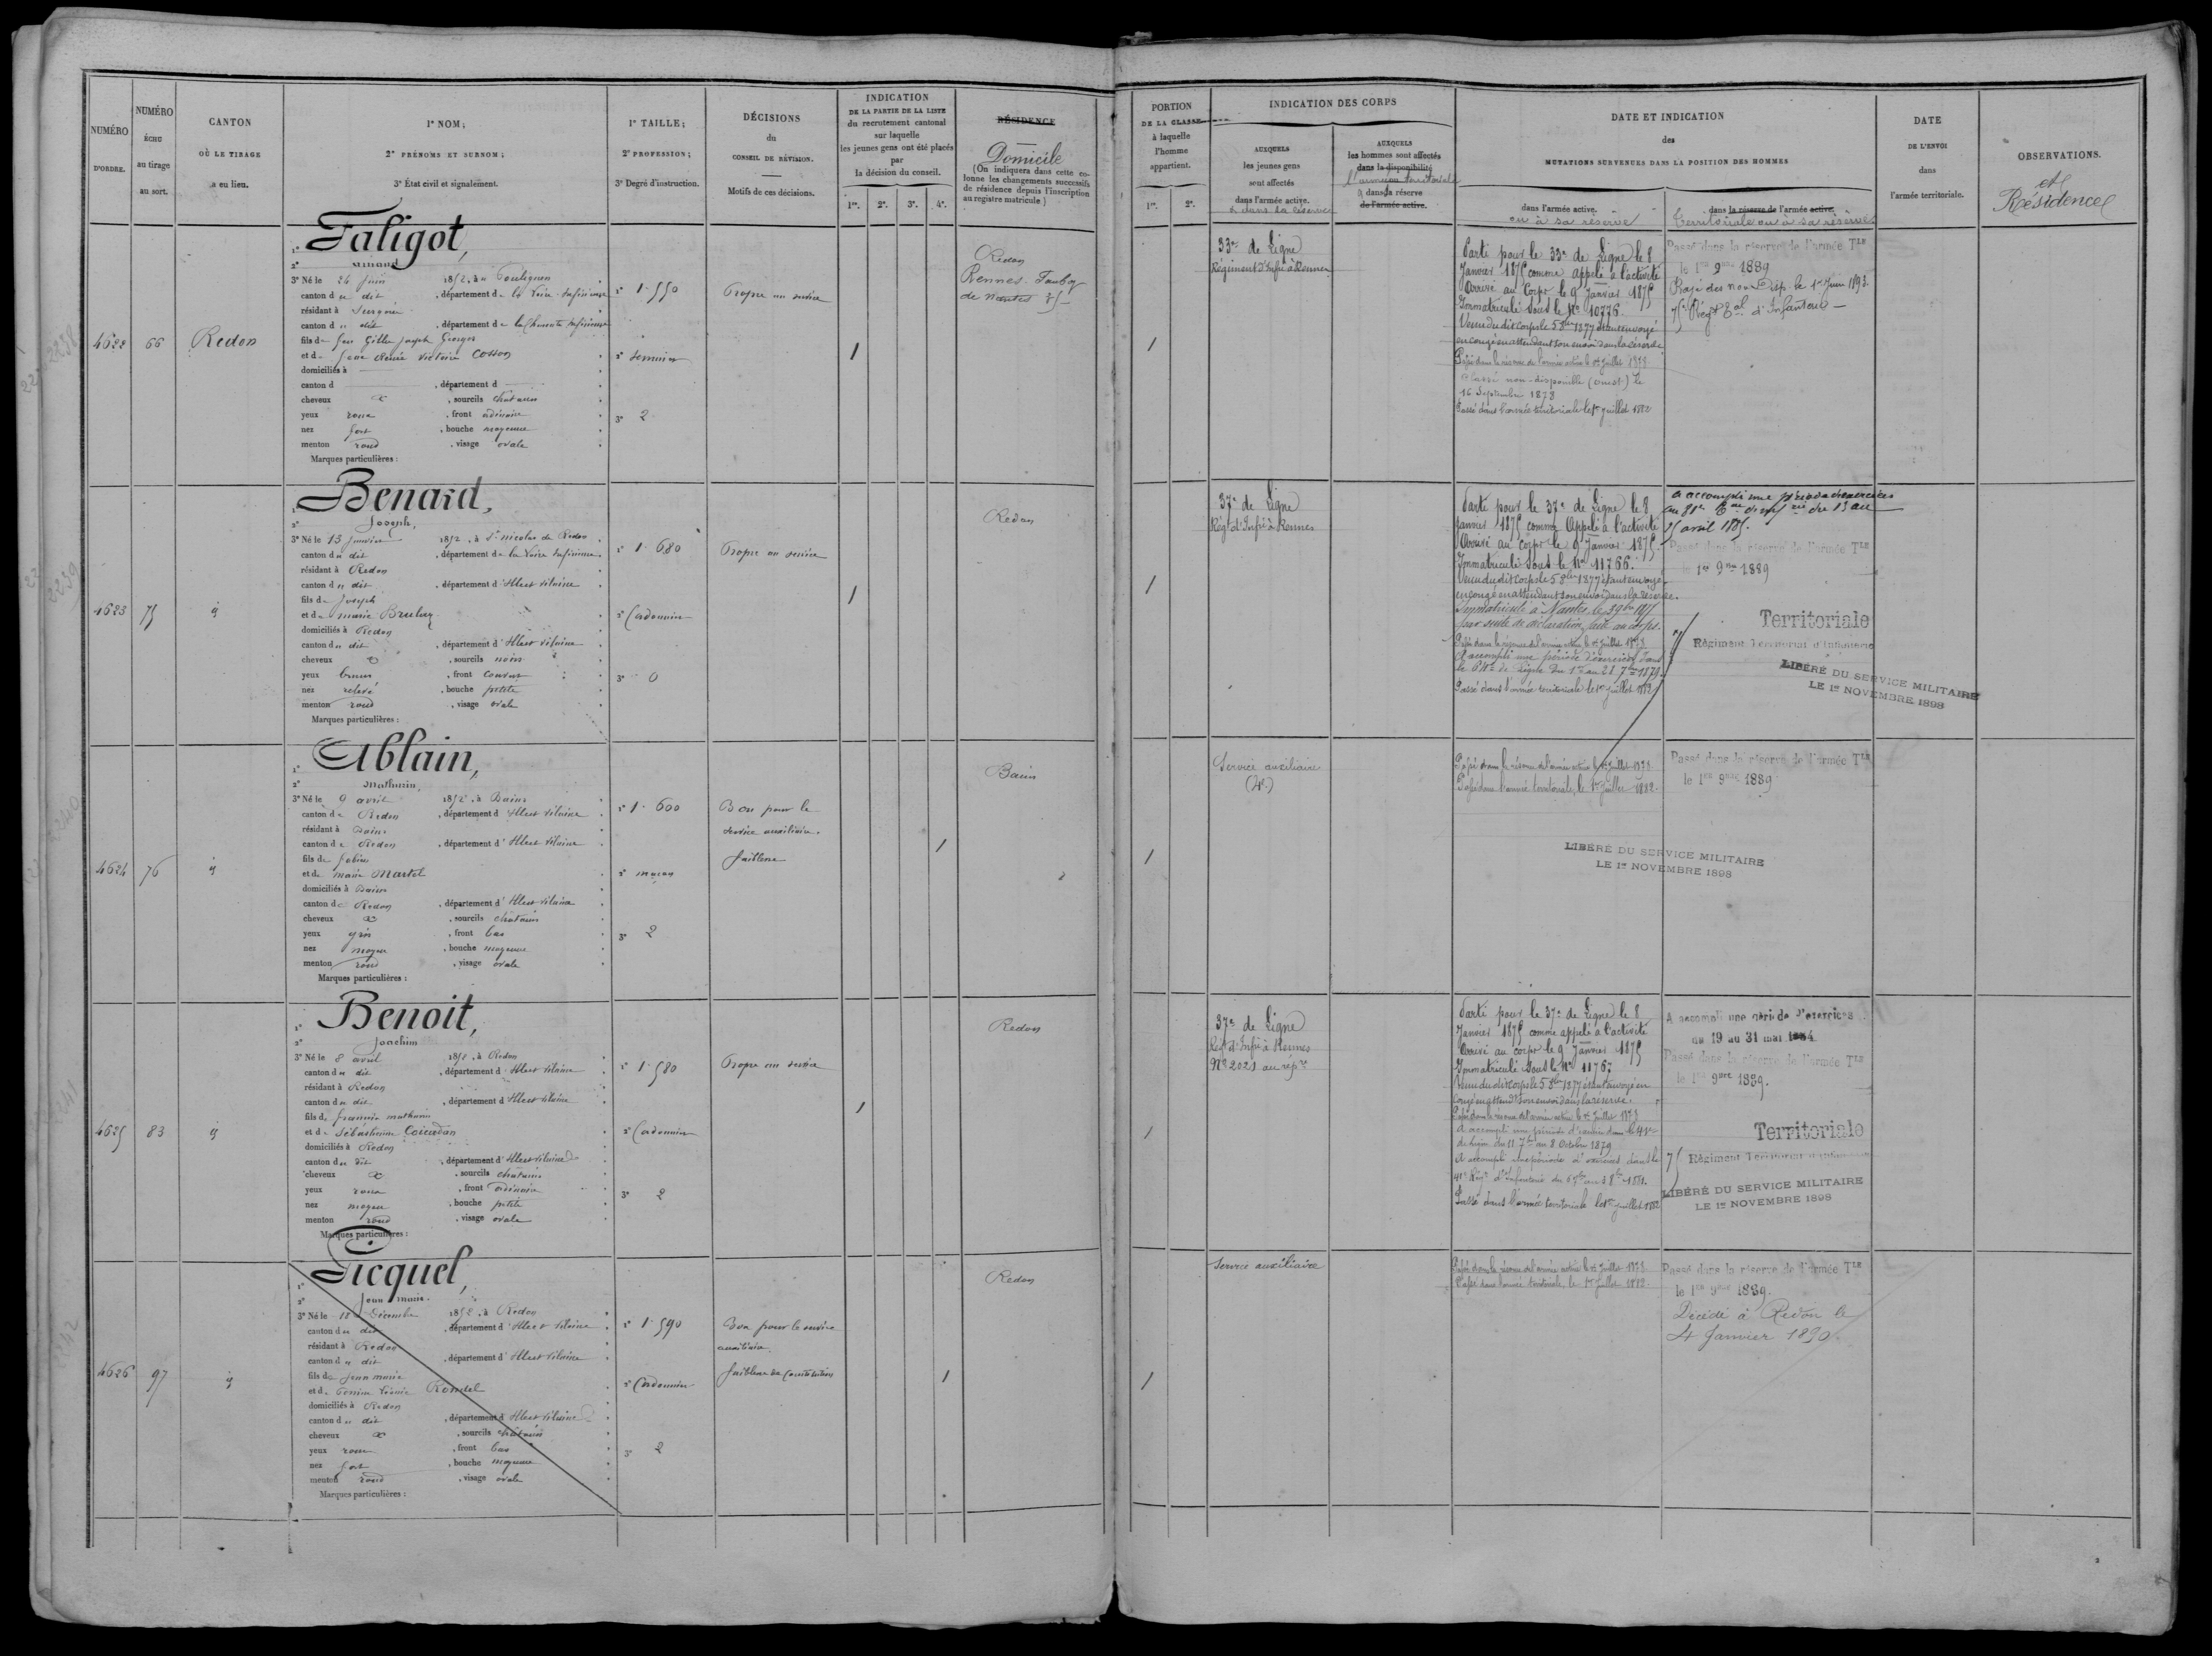 NUMÉRO
D'ORDRE.
NUMÉRO
ÉCHU
au tirage
au sort.
CANTON
OÙ LE TIRAGE
a eu lieu.
1° NOM;
2° PRÉNOMS ET SURNOM;
3° État civil et signalement.
1° TAILLE;
2° PROFESSION;
3° Degré d'instruction.
DÉCISIONS
du
CONSEIL DE RÉVISION.
Motifs de ces décisions.
INDICATION
DE LA PARTIE DE LA LISTE
du recrutement cantonal
sur laquelle
les jeunes gens ont été placés
par
la décision du conseil.
1re. 2e. 3e. 4e.
RÉSIDENCE
Domicile
(On indiquera dans cette co-
lonne les changements successifs
de résidence depuis l'inscription
au registre matricule)
PORTION
DE LA CLASSE
à laquelle
l'homme
appartient.
1re. 2e.
INDICATION DES CORPS
AUXQUELS
les jeunes gens
sont affectés
dans l'armée active.
& dans sa réserve
AUXQUELS
les hommes sont affectés
dans la disponibilité
l'armée territoriale
& dans sa réserve
de l'armée active.
DATE ET INDICATION
des
MUTATIONS SURVENUES DANS LA POSITION DES HOMMES
dans l'armée active.
ou à sa réserve
dans la réserve de l'armée active.
Territoriale ou à sa réserve
DATE
DE L'ENVOI
dans
l'armée territoriale.
OBSERVATIONS.
et
Résidence
4622
66
Redon
1° Faligot,
2°
3° Né le 24 Juin 1852, à
canton du dit, département de la Loire-Inférieure
résidant à Surgères
canton du dit, département de la Charente Inférieure
fils de feu Gilles Joseph Georges
et de Jeanne Renée Victoire Cosson
domiciliés à
canton d , département d
cheveux & , sourcils chatains
yeux roux , front ordinaire
nez fort , bouche moyenne
menton rond , visage ovale
Marques particulières :
1° 1.550
3° 2
Propre au service
1
Redon
Rennes. Faubg
de Nantes 75
1
33e de Ligne
Régiment d'Infrie à Rennes
Parti pour le 33e de Ligne le 8
Janvier 1875 comme appelé à l'activité
Arrivé au Corps le 9 Janvier 1875
Immatriculé sous le No 10776.
Venu du dit corps le 5 8bre 1877 étant envoyé
en congé en attendant son envoi dans la réserve
Passé dans la réserve de l'armée active le 1er Juillet 1878
Classé non-disponible (ouest) le
16 Septembre 1878
Passé dans l'armée territoriale le 1er juillet 1882
Passé dans la réserve de l'armée Tle
le 1er 9bre 1889
Rayé des non Disp. le 1er Juin 1893.
75e Régt Tal d'Infanterie
4623
75
id
1° Benard,
2° Joseph,
3° Né le 13 Janvier 1852, à St Nicolas de Redon
canton du dit , département de la Loire Inférieure
résidant à Redon
canton du dit , département d'Ille et Vilaine
fils de Joseph
et de Marie
domiciliés à Redon
canton du dit , département d'Ille et Vilaine
cheveux & , sourcils noirs
yeux bruns , front couvert
nez relevé , bouche petite
menton rond , visage ovale
Marques particulières :
1° 1.680
2° Cordonnier
3° 0
Propre au service
1
Redon
1
37e de Ligne
Régt d'Infrie à Rennes
Parti pour le 37e de Ligne le 8
Janvier 1875 comme Appelé à l'activité
Arrivé au corps le 9 Janvier 1875.
Immatriculé sous le No 11766.
Venu du dit corps le 5 8bre 1877 étant envoyé
en congé en attendant son envoi dans la réserve.
Immatriculé à Nantes, le
par suite de déclaration, faite au corps.
Passé dans la réserve de l'armée active le 1er Juillet 1878
A accompli une période d'exercices dans
le 64e de Ligne du 1er au 28 7bre 1879
Passé dans l'armée territoriale le 1er Juillet 1882
a accompli une période d'exercices
au 81e Tal d'infrie du 13 au
25 avril 1885.
Passé dans la réserve de l'armée Tle
le 1er 9bre 1889
Territoriale
75 Régiment Territorial d'Infanterie
LIBÉRÉ DU SERVICE MILITAIRE
LE 1er NOVEMBRE 1898
4624
76
id
1° Ablain,
2° Mathurin,
3° Né le 9 avril 1852, à Bains
canton de Redon , département d'Ille et Vilaine
résidant à Bains
canton de Redon , département d'Ille et Vilaine
fils de
et de Marie Martel
domiciliés à Bains
canton de Redon , département d'Ille et Vilaine
cheveux & , sourcils chatains
yeux gris , front bas
nez moyen , bouche moyenne
menton rond , visage ovale
Marques particulières :
1° 1.600
2° maçon
3° 2
Bon pour le
service auxiliaire.
faiblesse
1
Bains
1
Service auxiliaire
(4e)
Passé dans la réserve de l'armée active le 1er Juillet 1878
Passé dans l'armée territoriale, le 1er Juillet 1882.
LIBÉRÉ DU SERVICE MILITAIRE
LE 1er NOVEMBRE 1898
Passé dans la réserve de l'armée Tle
le 1er 9bre 1889
4625
83
id
1° Benoit,
2° Joachim
3° Né le 8 avril 1852, à Redon
canton du dit , département d'Ille et Vilaine
résidant à Redon
canton du dit , département d'Ille et Vilaine
fils de Mathurin
et de Sébastienne
domiciliés à Redon
canton du dit , département d'Ille et Vilaine
cheveux & , sourcils chatains
yeux roux , front ordinaire
nez moyen , bouche petite
menton rond , visage ovale
Marques particulières :
1° 1.580
2° Cordonnier
3° 2
Propre au service
1
Redon
1
37e de Ligne
Régt d'Infrie à Rennes
No 2021 au répre
Parti pour le 37e de Ligne le 8
Janvier 1875 comme appelé à l'activité
Arrivé au corps le 9 Janvier 1875
Immatriculé sous le No 11767
Venu du dit corps le 5 8bre 1877 étant envoyé en
congé en attendt son envoi dans la réserve.
Passé dans la réserve de l'armée active le 1er Juillet 1878
A accompli une période d'exercices dans le 41e
de ligne du 11 7bre au 8 Octobre 1879
A accompli une période d'exercices dans le
41e Régt d'Infanterie du 6 7bre au 3 8bre 1881.
Passé dans l'armée territoriale le 1er juillet 1882
A accompli une période d'exercices
du 19 au 31 mai 1884
Passé dans la réserve de l'armée Tle
le 1er 9bre 1889.
Territoriale
75 Régiment Territorial d'Infanterie
LIBÉRÉ DU SERVICE MILITAIRE
LE 1er NOVEMBRE 1898
4626
97
id
1° Picquel,
2° Jean Marie.
3° Né le 18 Décembre 1852, à Redon
canton du dit , département d'Ille et Vilaine
résidant à Redon
canton du dit , département d'Ille et Vilaine
fils de Jean Marie
et de Rondel
domiciliés à Redon
canton du dit , département d'Ille et Vilaine
cheveux & , sourcils chatains
yeux roux , front bas
nez fort , bouche moyenne
menton rond , visage ovale
Marques particulières :
1° 1.590
2° Cordonnier
3° 2
Bon pour le service
auxiliaire.
faiblesse de constitution
1
Redon
1
Service auxiliaire
Passé dans la réserve de l'armée active le 1er Juillet 1878
Passé dans l'armée territoriale, le 1er Juillet 1882.
Passé dans la réserve de l'armée Tle
le 1er 9bre 1889.
Décédé à Redon le
4 Janvier 1890.